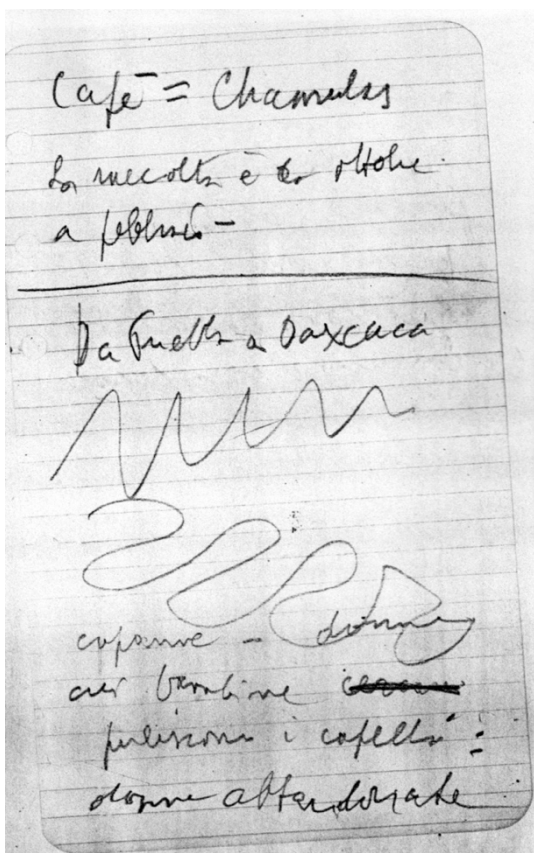 Café = Chamulas
La raccolta è da ottobre
a febbraio -
Da Puebla a Oaxcaca
capanne - donne
cui bambine
puliscono i capelli :
donne abbandonate